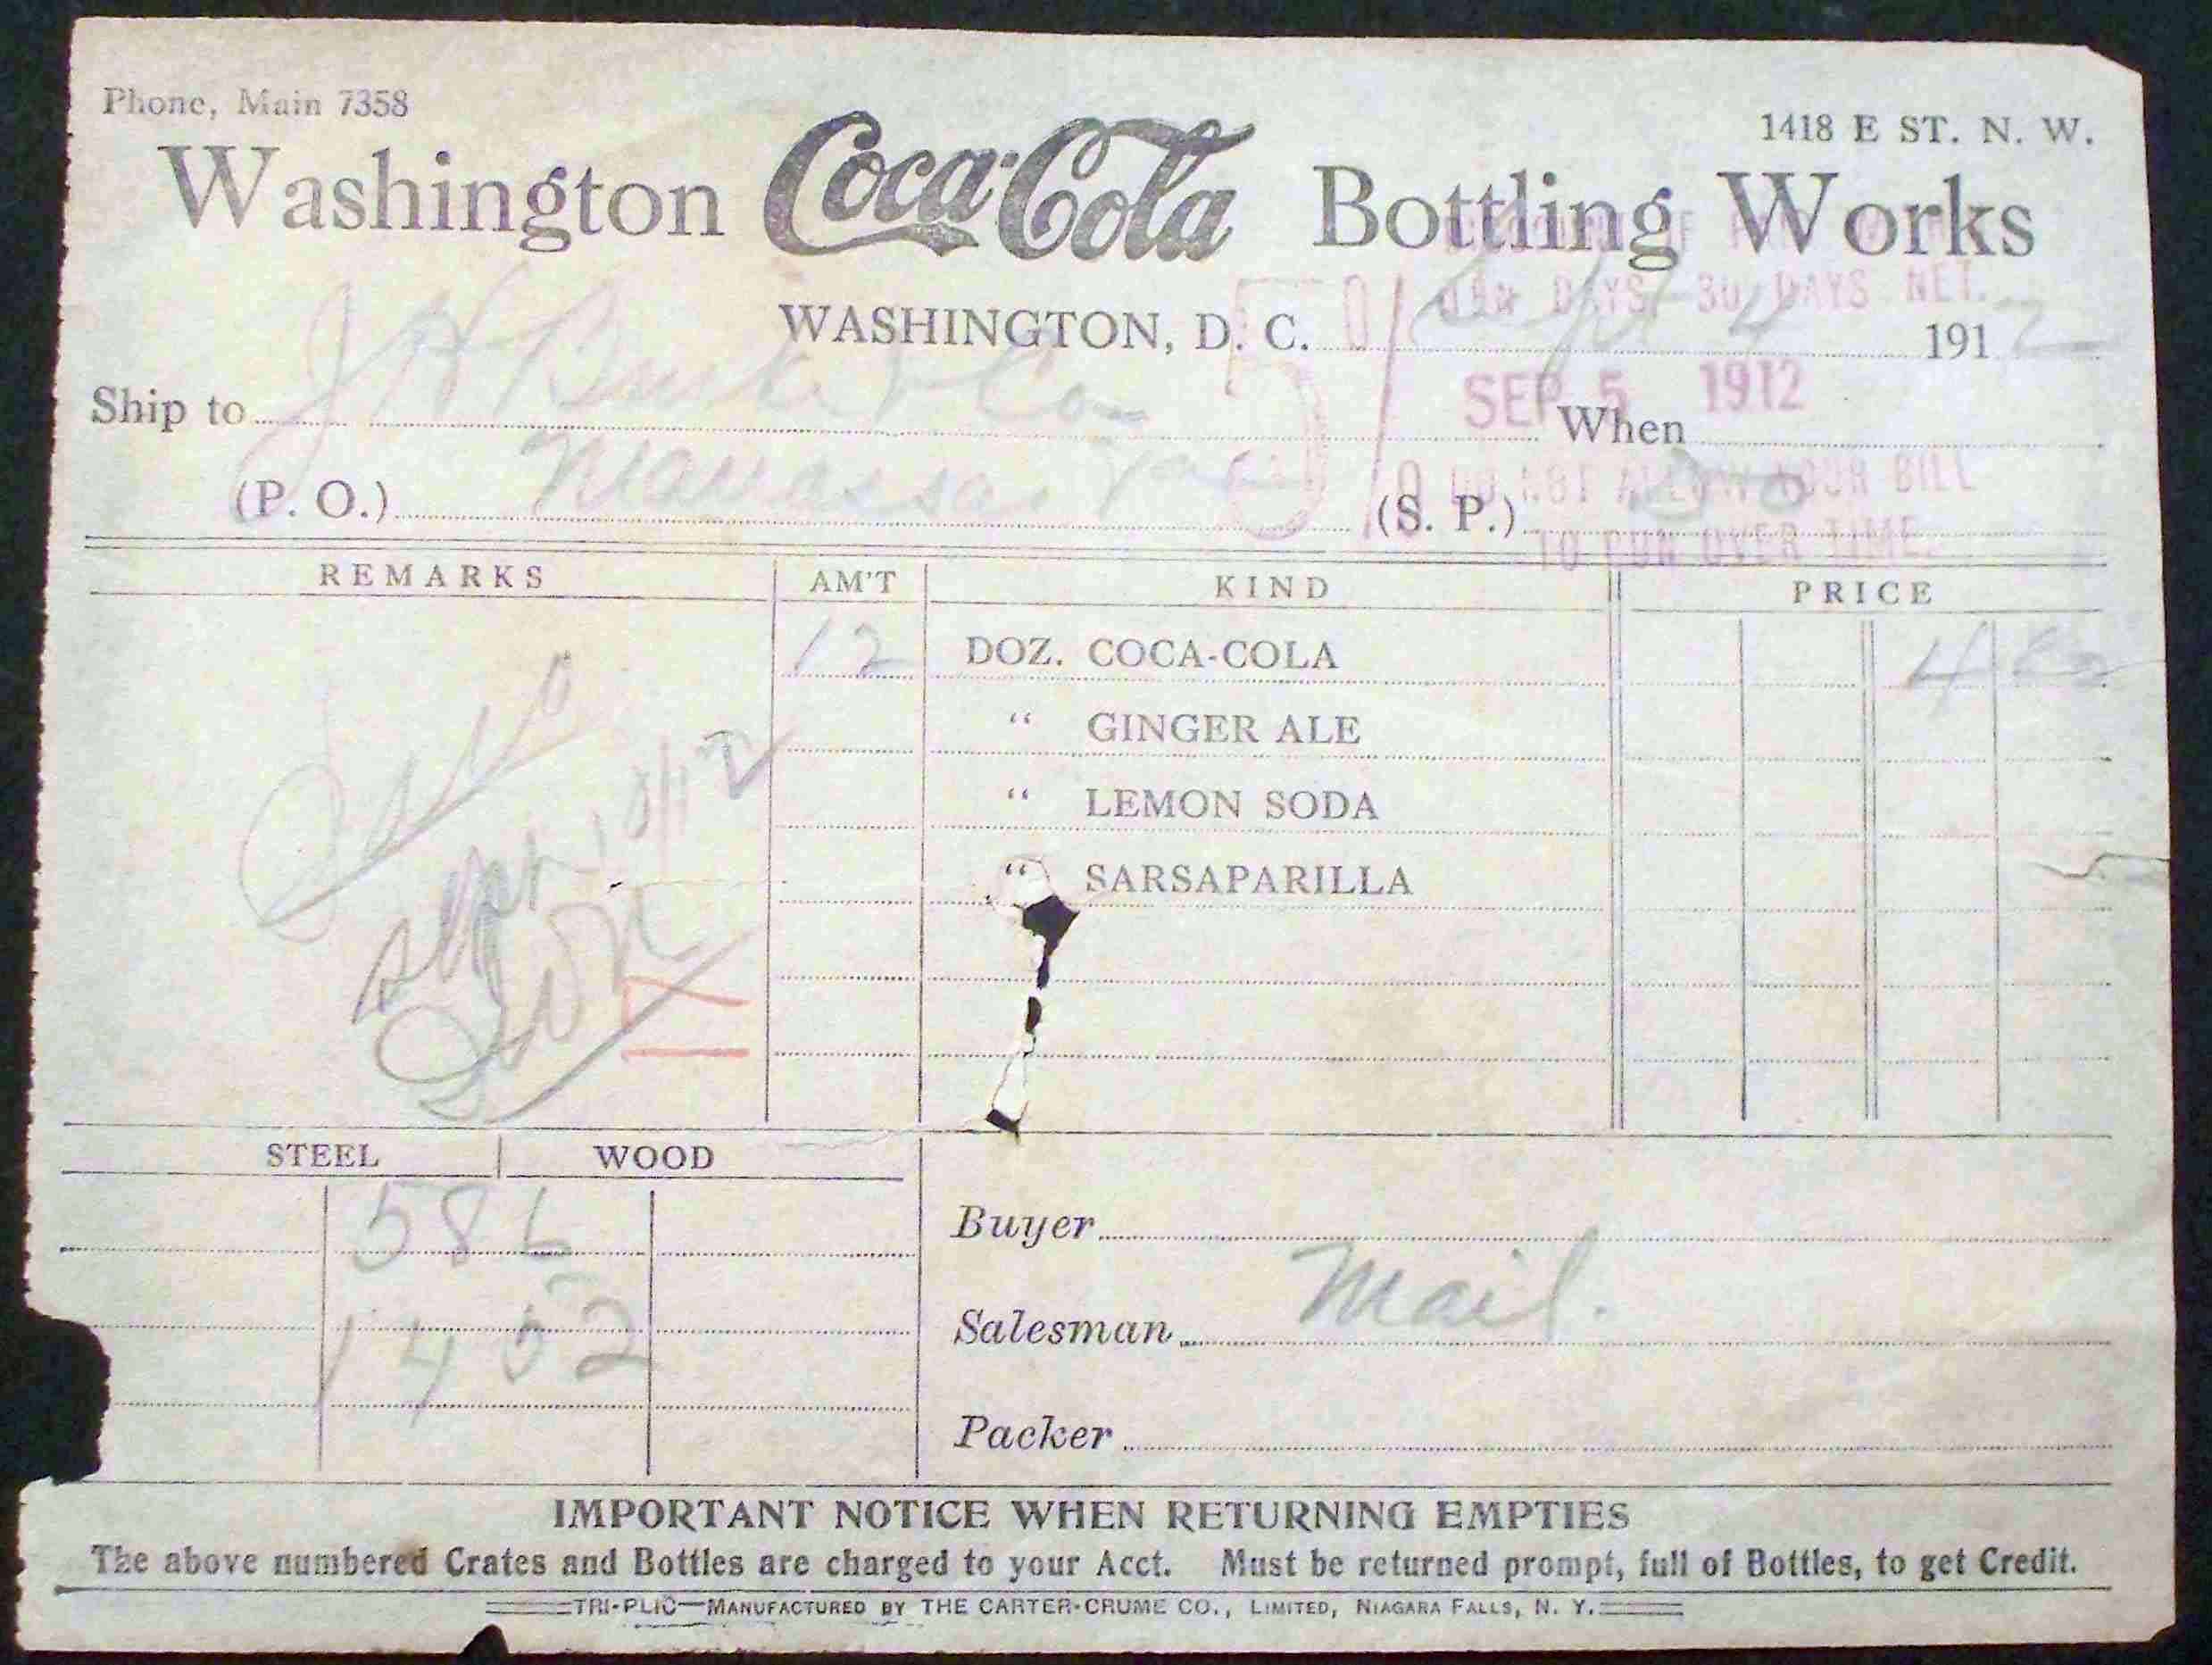 Phone, Main 7358
1418 E ST. N. W.
Washington Coca-Cola Bottling Works
DAYS 30 DAYS NET.
WASHINGTON, D. C. 4 1912
5%
SEP 5 1912
Ship to J H & Co When
(P. O.) Manassas Va (S. P.)
DO NOT ALLOW YOUR BILL
TO RUN OVER TIME.
REMARKS AM'T KIND PRICE
12 DOZ. COCA-COLA 4
" GINGER ALE
" LEMON SODA
" SARSAPARILLA
STEEL WOOD
Buyer
1402
Salesman Mail.
Packer
IMPORTANT NOTICE WHEN RETURNING EMPTIES
The above numbered Crates and Bottles are charged to your Acct. Must be returned prompt, full of Bottles, to get Credit.
TRI-PLIC—MANUFACTURED BY THE CARTER-CRUME CO., LIMITED, NIAGARA FALLS, N. Y.